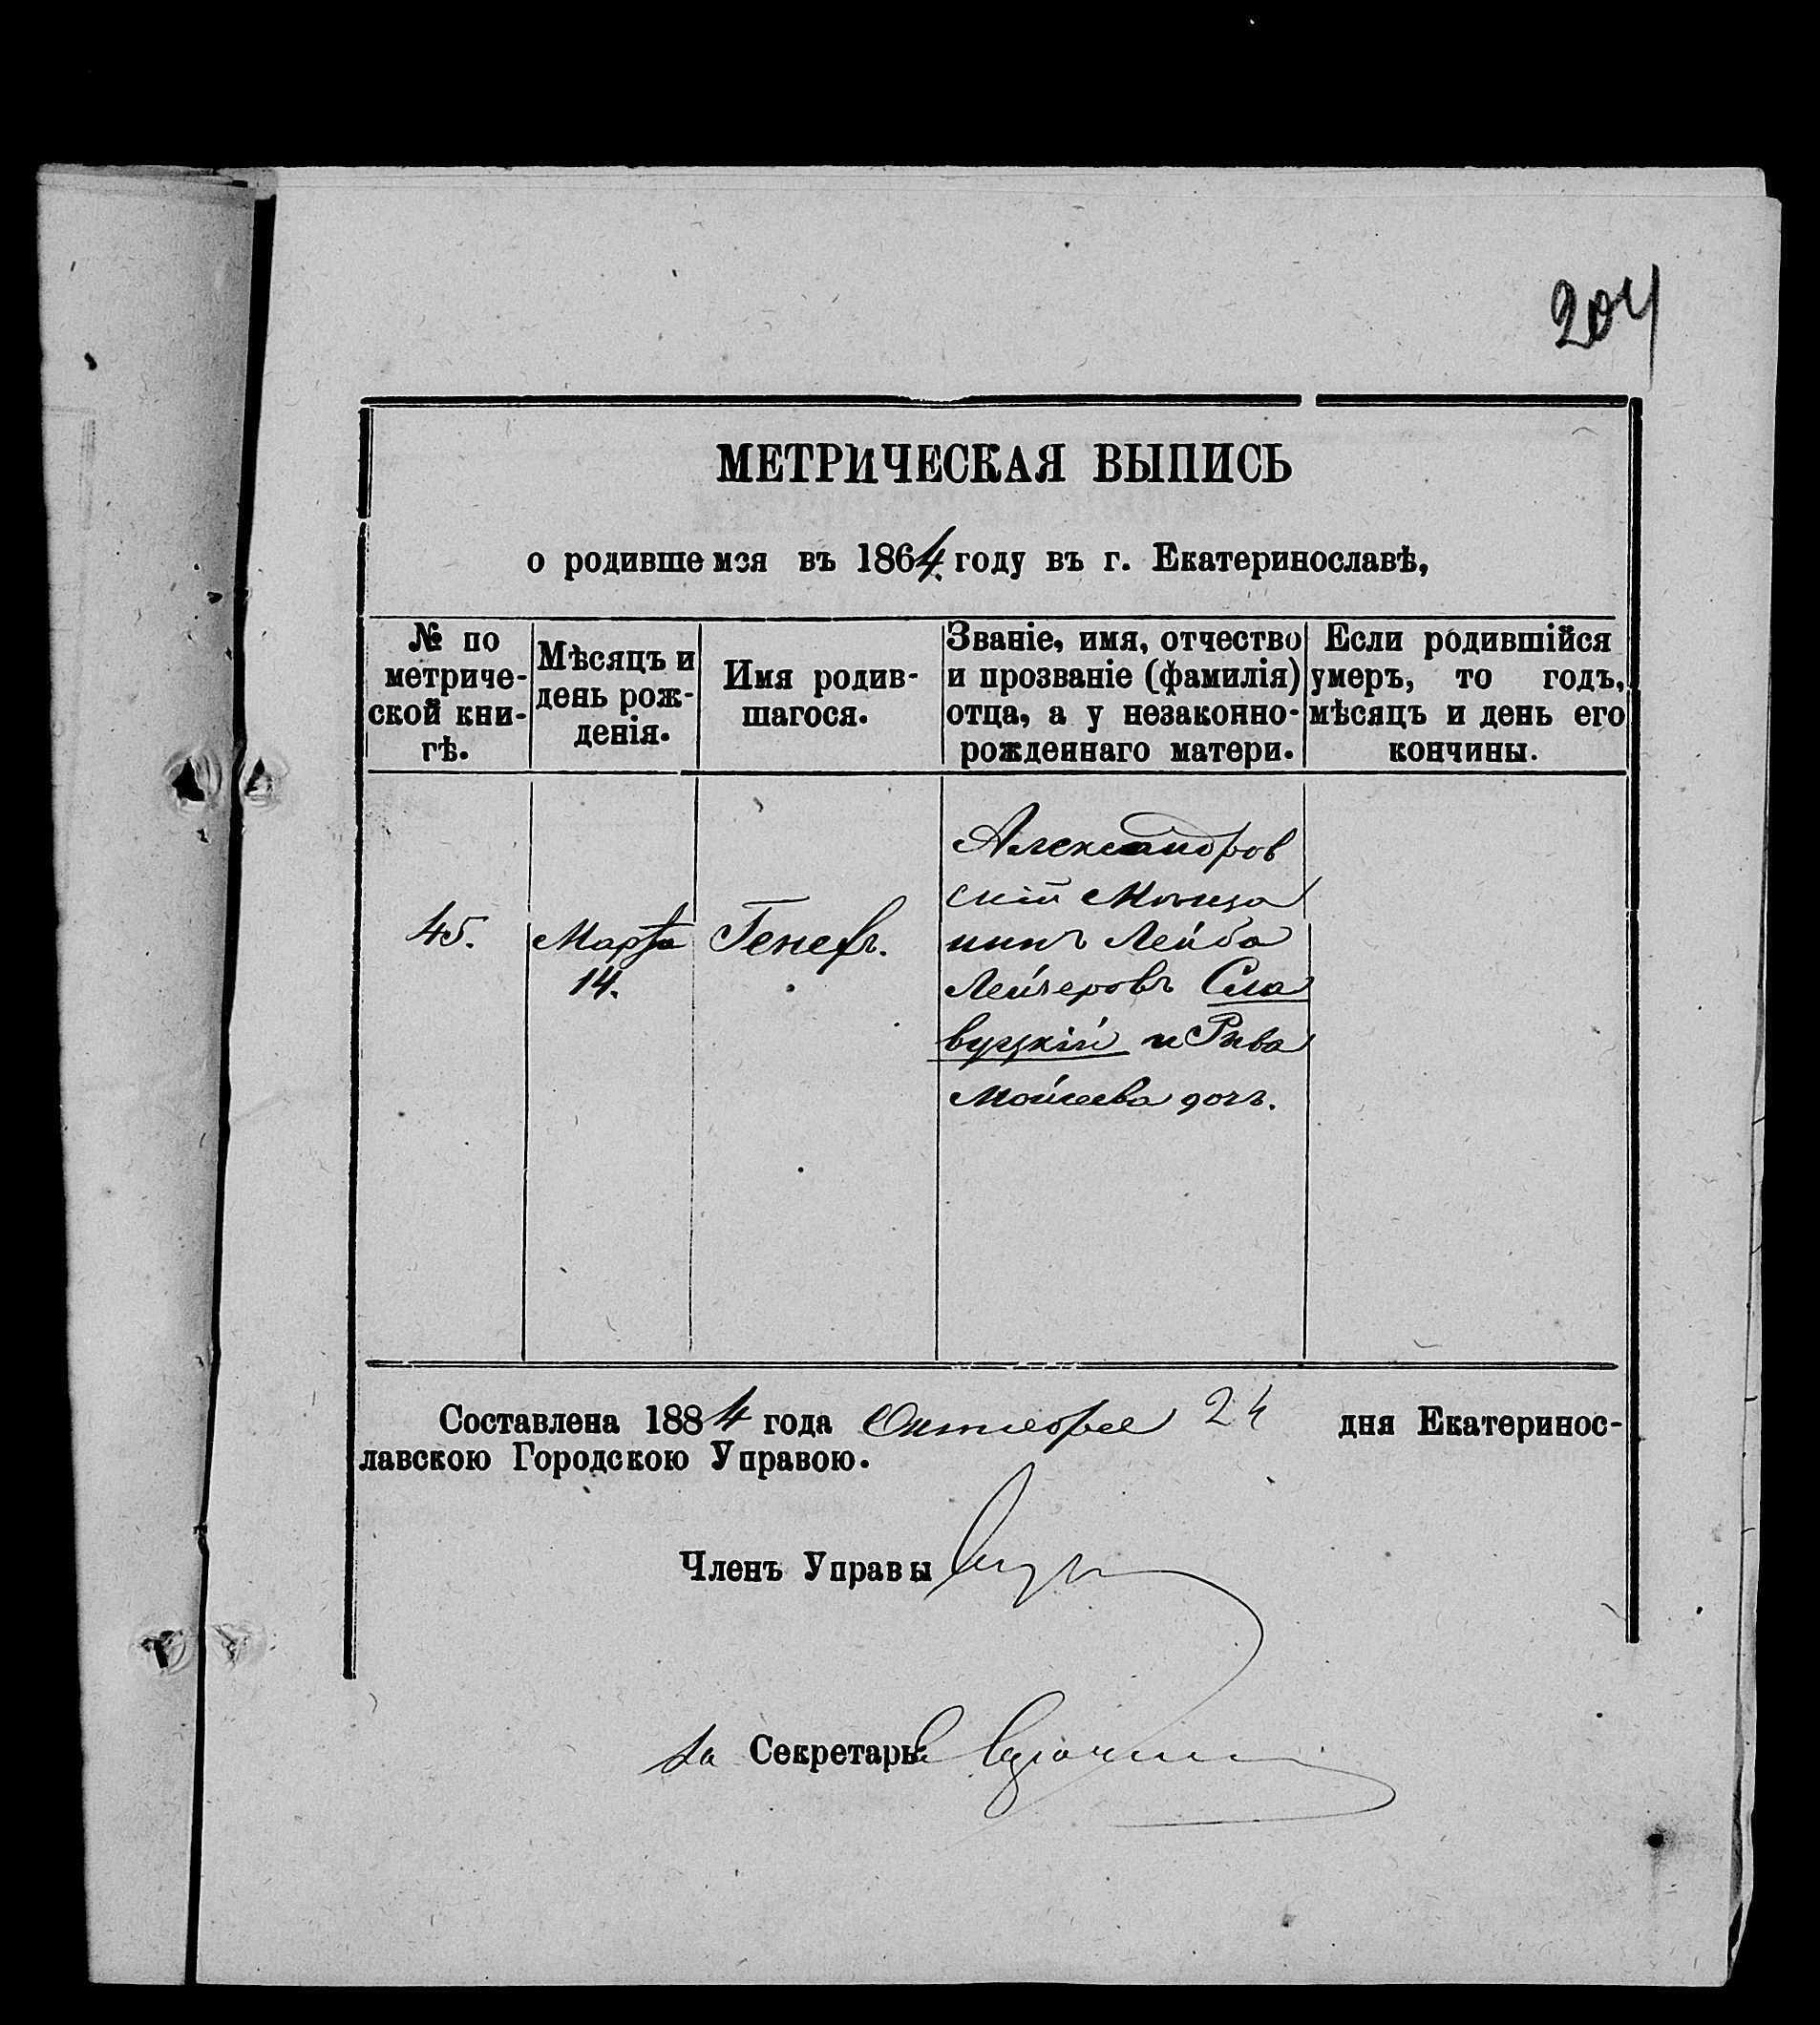 204
МЕТРИЧЕСКАЯ ВЫПИСЬ
о родившемся въ 1864 году въ г. Екатеринославѣ,
№ по метриче-
ской кни-
гѣ.
Мѣсяцъ и
день рож-
денія.
Имя родив-
шагося.
Званіе, имя, отчество
и прозваніе (фамилія)
отца, а у незаконно-
рожденнаго матери.
Если родившійся
умеръ, то годъ,
мѣсяцъ и день его
кончины.
45.
Марта
14.
Генехъ.
Александров
скій Мѣща
нинъ Лейба
Лейзеровъ Сла
вуцкій и Рива
Моисеева дочь.
Составлена 1884 года Октября 24 дня Екатеринос-
лавскою Городскою Управою.
Членъ Управы
за Секретарь